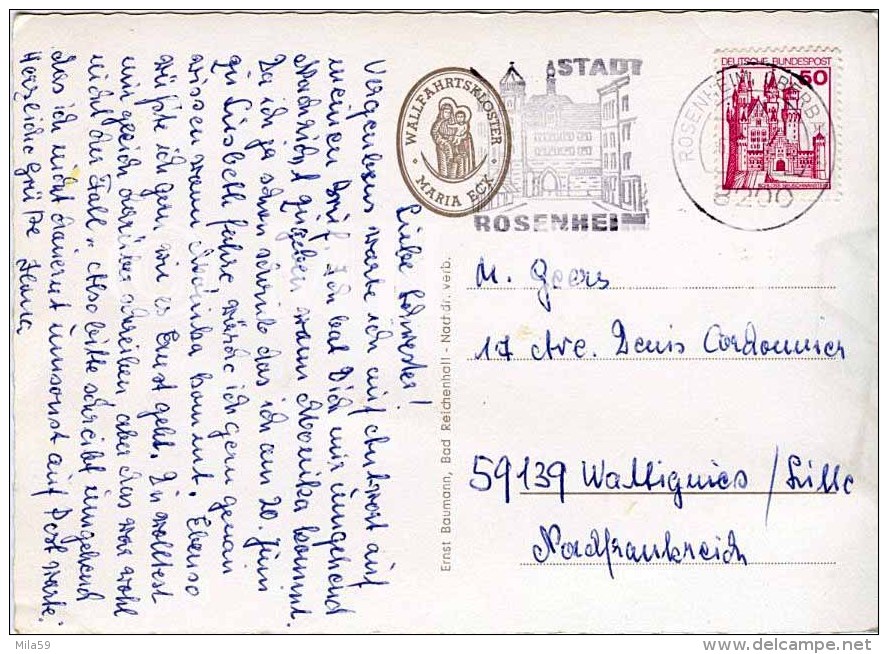 Liebe Schwester!
Vergebens warte ich auf Antwort auf
meinen Brief. Ich bat Dich mir umgehend
Nachricht zugeben wann Monika kommt.
Da ich ja schon schrieb das ich am 20. Juni
zu Lisbeth fahre, würde ich gern genau
wissen wann Monika kommt. Ebenso
wüßte ich gern wie es Ernst geht. Du wolltest
mir gleich darüber schreiben aber das war wohl
nicht der Fall. Also bitte schreibt umgehend
das ich nicht dauernt umsonst auf Post warte.
Herzliche Grüße
WALLFAHRTSKLOSTER
MARIA ECK
STADT
ROSENHEIM
DEUTSCHE BUNDESPOST
50
ROSENHEIM
8200
Ernst Baumann, Bad Reichenhall - Nachdr. verb.
M. Geers
17 Ave. Denis Cordonnier
59139 Wattignies / Lille
Nordfrankreich
Mila59
www.delcampe.net